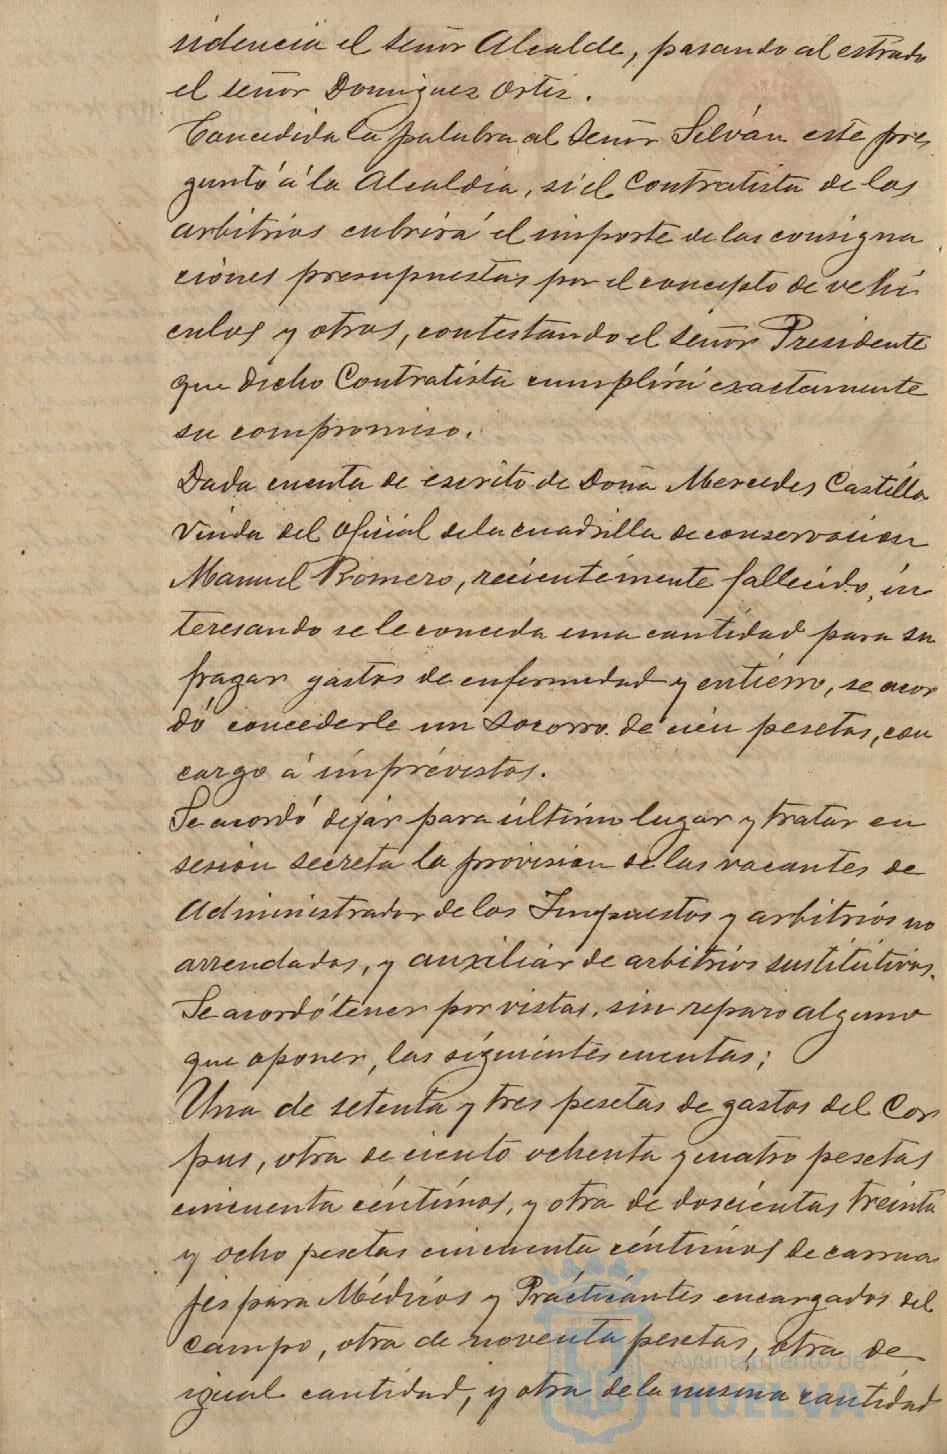 sidencia el señor Alcalde, pasando al estrado
el señor Dominguez Ortiz.
Concedida la palabra al Señor Silván este pre
guntó á la Alcaldia, si el Contratista de los
arbitrios cubrirá el importe de las consigna
ciones presupuestas por el concepto de vehi
culos y otros, contestando el señor Presidente
que dicho Contratista cumplirá exactamente
su compromiso.
Dada cuenta de escrito de Doña Mercedes Castilla
viuda del oficial de la cuadrilla de conservacion
Manuel Romero, recientemente fallecido, in
teresando se le conceda una cantidad para su
fragar gastos de enfermedad y entierro, se acor
dó concederle un socorro de cien pesetas, con
cargo á imprevistos.
Se acordó dejar para último lugar y tratar en
sesion secreta la provision de las vacantes de
Administrador de los Impuestos y arbitrios no
arrendados, y auxiliar de arbitrios sustitutivos.
Se acordó tener por vistas, sin reparo alguno
que oponer, las siguientes cuentas;
Una de setenta y tres pesetas de gastos del Cor
pus, otra de ciento ochenta y cuatro pesetas
cincuenta céntimos, y otra de doscientas treinta
y ocho pesetas cincuenta céntimos de carrua
jes para Médicos y Practicantes encargados del
campo, otra de noventa pesetas, otra de
igual cantidad, y otra de la misma cantidad
Ayuntamiento de
HUELVA